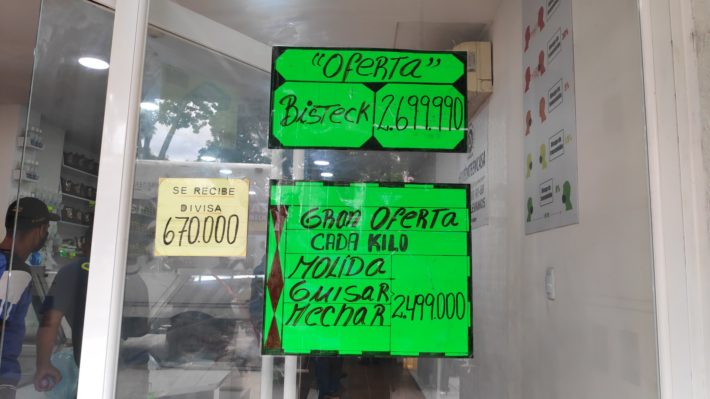 "OFERTA"
BISTECK 2.699.990
SE RECIBE
DIVISA
670.000
GRAN OFERTA
CADA KILO
MOLIDA
GUISAR
MECHAR 2.499.000